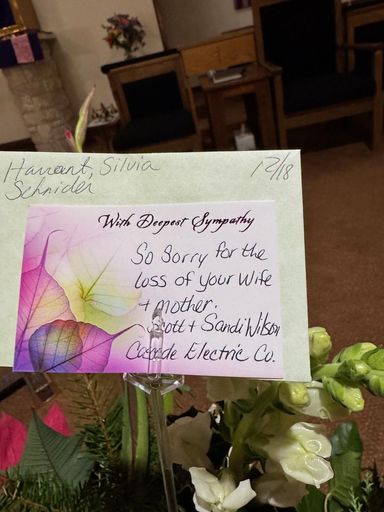 Harrant, Silvia 12/18
Schnider
With Deepest Sympathy
So Sorry for the
loss of your Wife
+ mother.
Scott + Sandi Wilson
Cascade Electric Co.